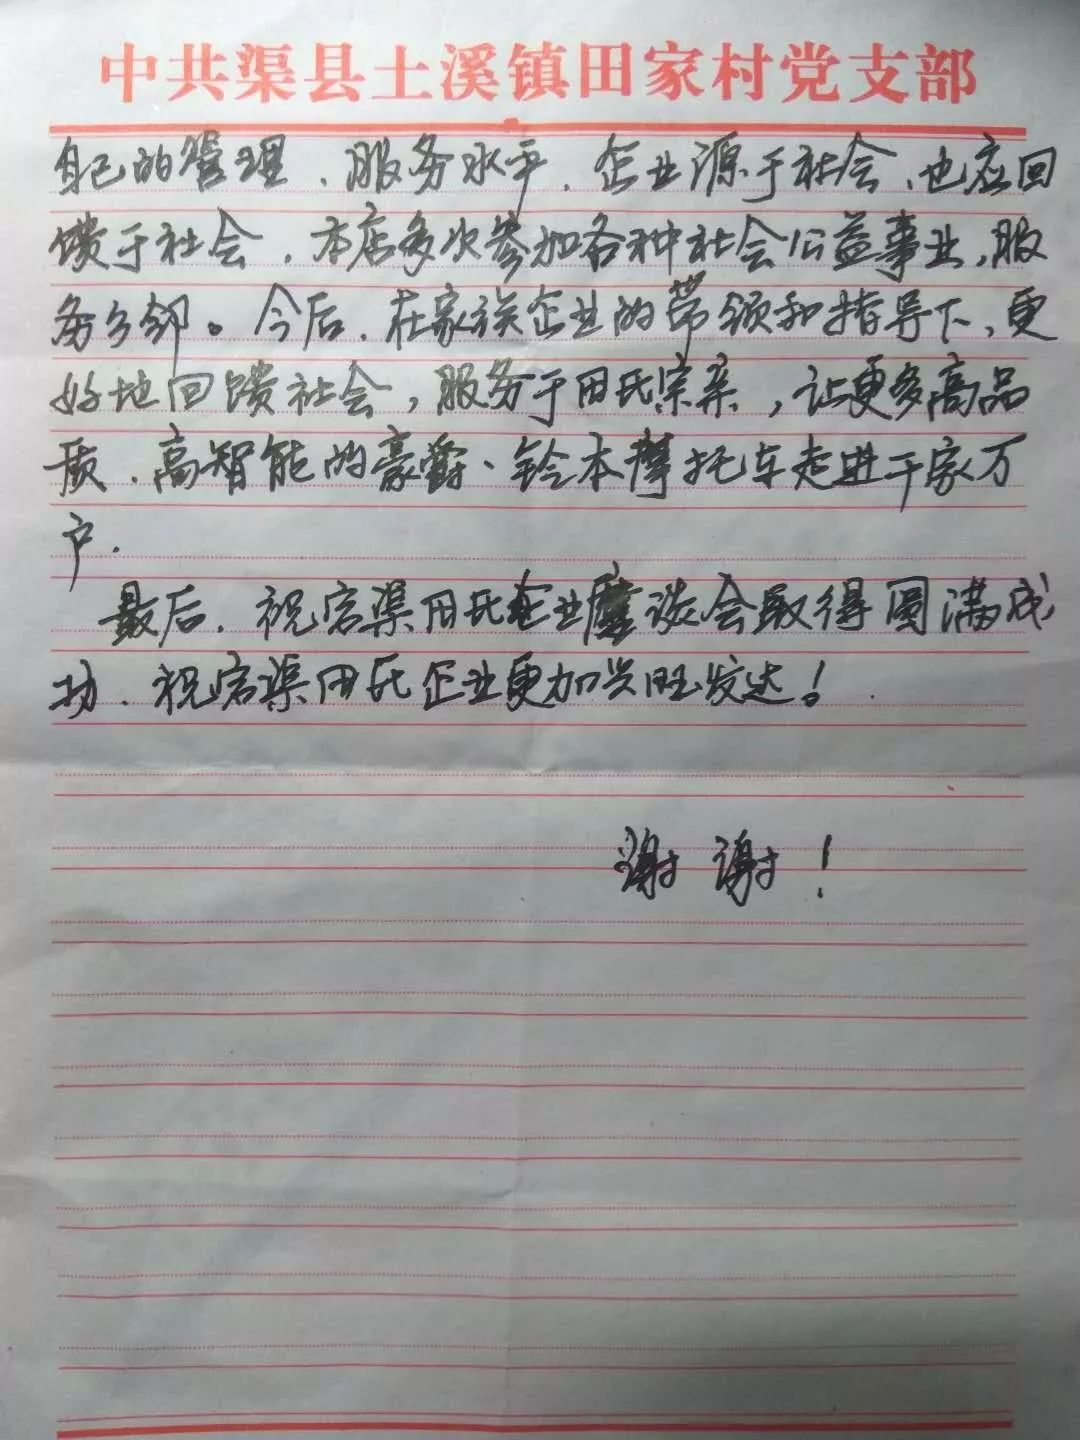 中共渠县土溪镇田家村党支部
自己的管理、服务水平，企业源于社会、也应回
馈于社会，本店多次参加各种社会公益事业，服
务乡邻。今后，在家族企业的带领和指导下，更
好地回馈社会，服务于田氏宗亲，让更多高品
质、高智能的豪爵·铃木摩托车走进千家万
户.
最后，祝宕渠田氏企业座谈会取得圆满成
功、祝宕渠田氏企业更加兴旺发达！
谢谢！